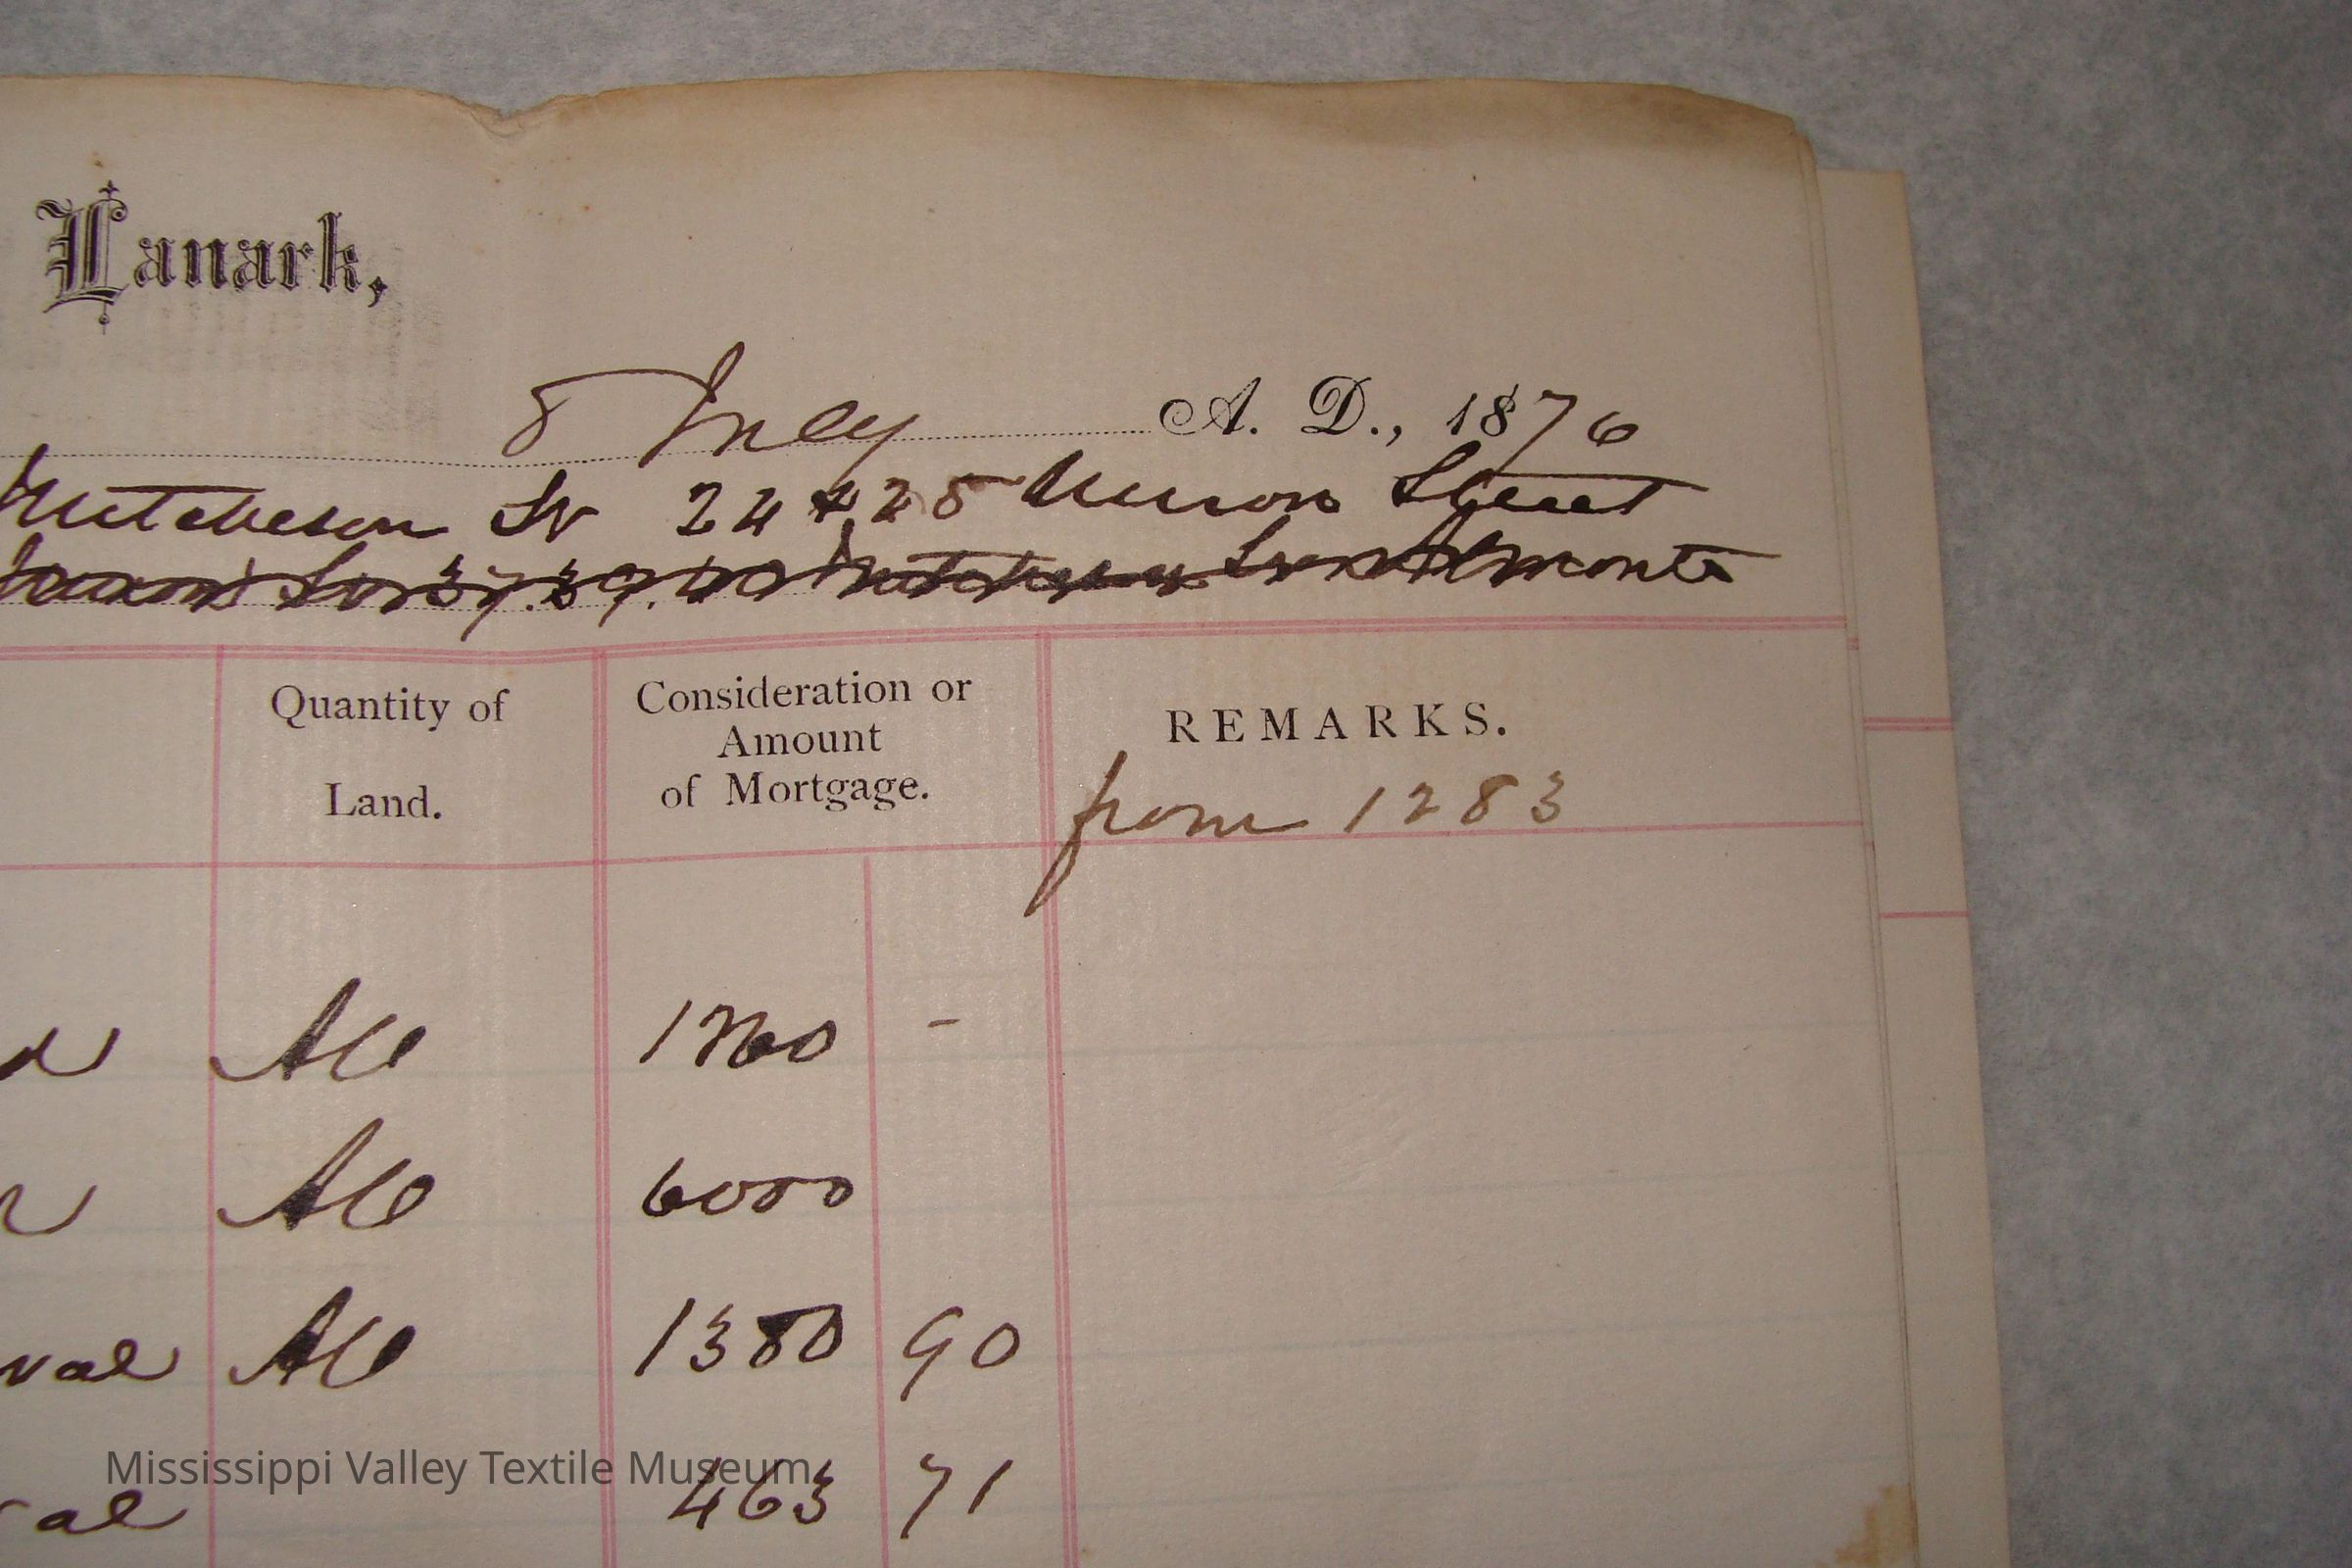 Lanark,
8 July A. D., 1876
Hutcheson Sr 24 & 25 Union Street
Lot 37. 39. 40 Almonte
Quantity of Land.
Consideration or Amount of Mortgage.
REMARKS.
from 1283
All 1760 -
All 6000
val All 1380 90
al 463 71
Mississippi Valley Textile Museum